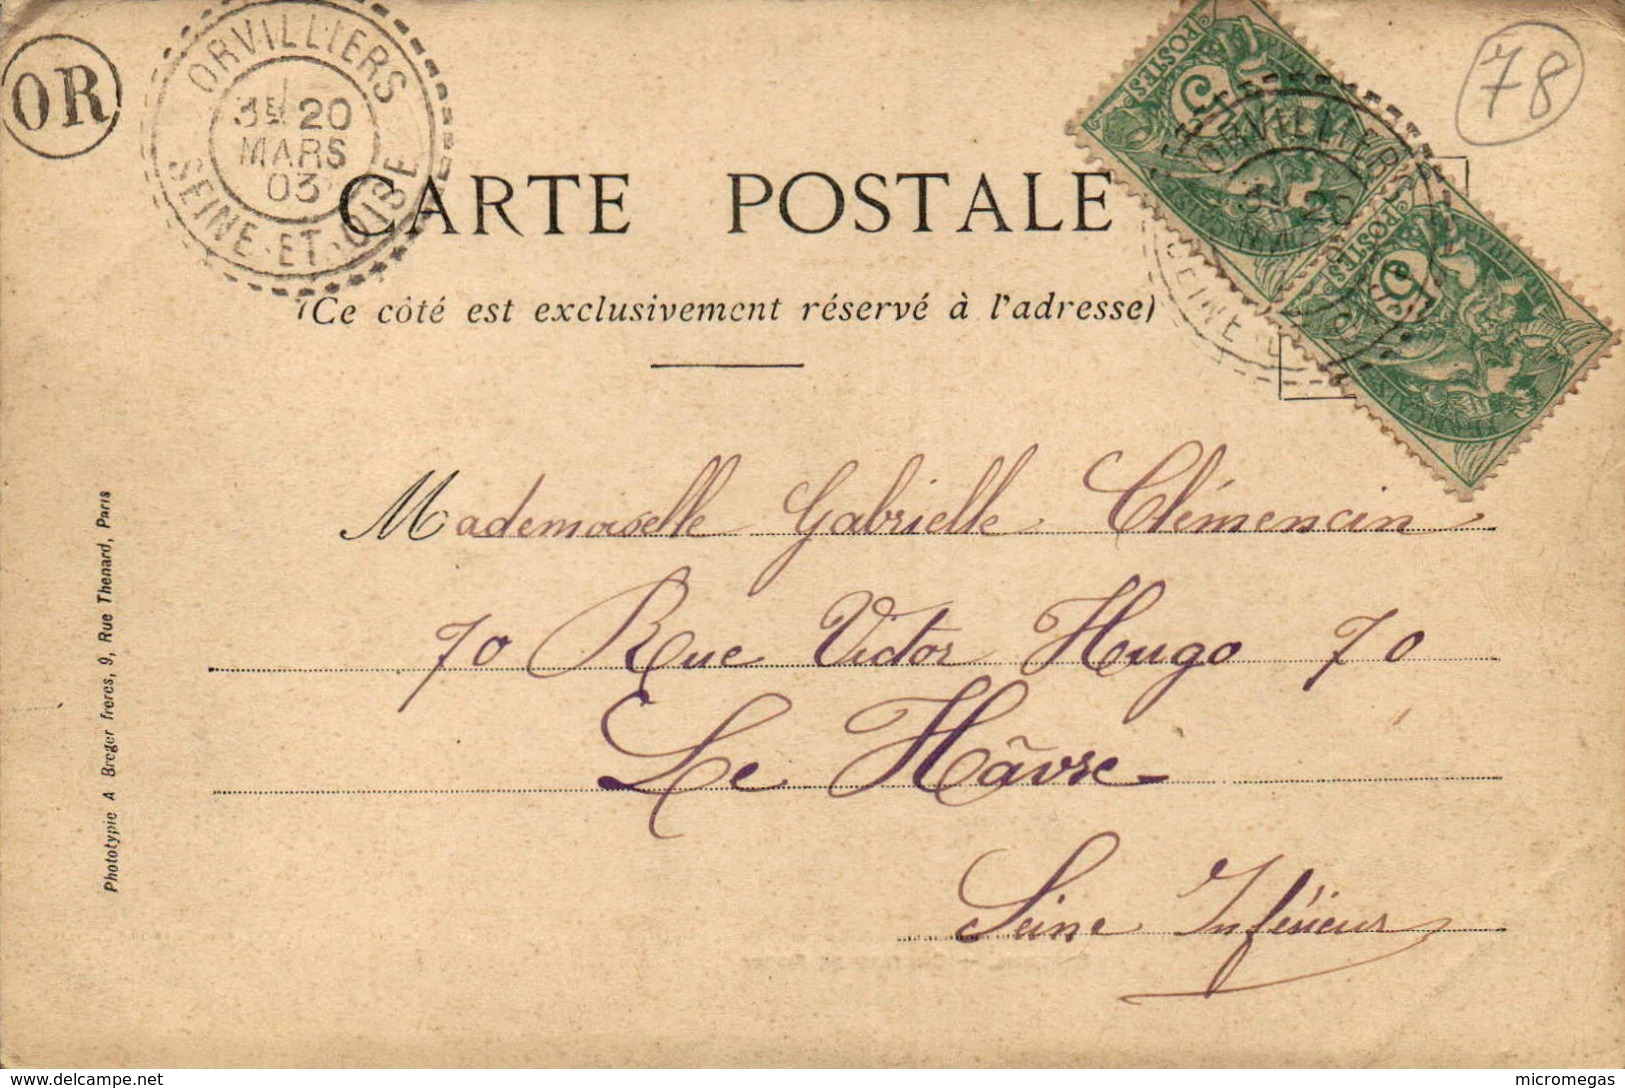 OR
ORVILLIERS
20
MARS
03
SEINE-ET-OISE
78
POSTES
5
ORVILLIERS
20
SEINE
POSTES
5
CARTE POSTALE
(Ce côté est exclusivement réservé à l'adresse)
Mademoiselle Gabrielle Clémencin
70 Rue Victor Hugo 70
Le Hâvre
Seine Inférieur
Phototypie A Breger freres, 9, Rue Thenard, Paris
www.delcampe.net
micromegas